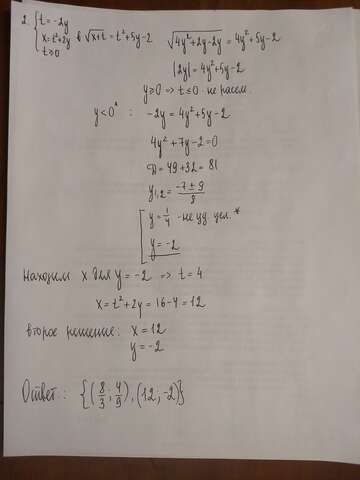 2. { t = -2y
x = t²+2y
t ≥ 0 в √(x+t) = t²+5y-2 √(4y²+2y-2y) = 4y²+5y-2
|2y| = 4y²+5y-2
y ≥ 0 ⇒ t ≤ 0 - не расем.
y < 0* : -2y = 4y²+5y-2
4y²+7y-2=0
D = 49+32 = 81
y₁,₂ = (-7 ± 9)/8
[ y = 1/4 - не уд. усл. *
y = -2
Находим x для y = -2 ⇒ t = 4
x = t²+2y = 16-4 = 12
второе решение: x = 12
y = -2
Ответ: {(8/3; 4/9), (12; -2)}